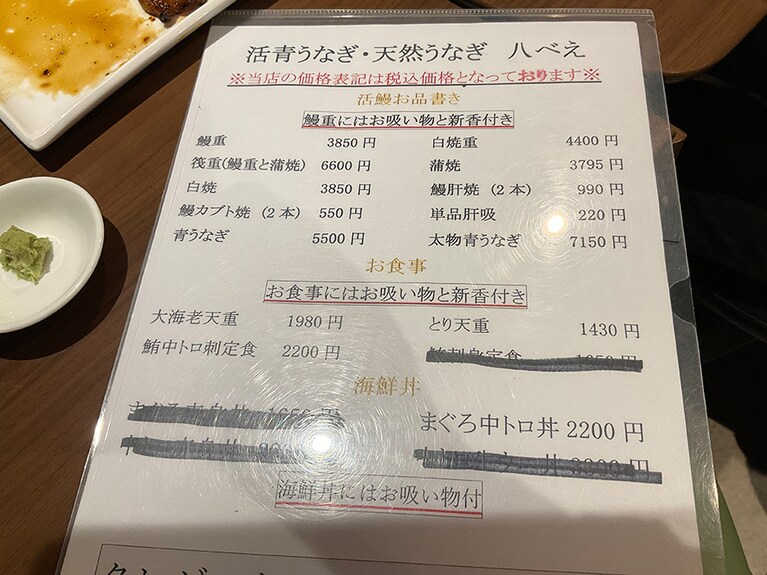 活青うなぎ・天然うなぎ 八べえ
※当店の価格表記は税込価格となっております※
活鰻お品書き
鰻重にはお吸い物と新香付き
鰻重 3850 円 白焼重 4400 円
筏重(鰻重と蒲焼) 6600 円 蒲焼 3795 円
白焼 3850 円 鰻肝焼 (2 本) 990 円
鰻カブト焼 (2 本) 550 円 単品肝吸 220 円
青うなぎ 5500 円 太物青うなぎ 7150 円
お食事
お食事にはお吸い物と新香付き
大海老天重 1980 円 とり天重 1430 円
鮪中トロ刺定食 2200 円
海鮮丼
まぐろ中トロ丼 2200 円
海鮮丼にはお吸い物付